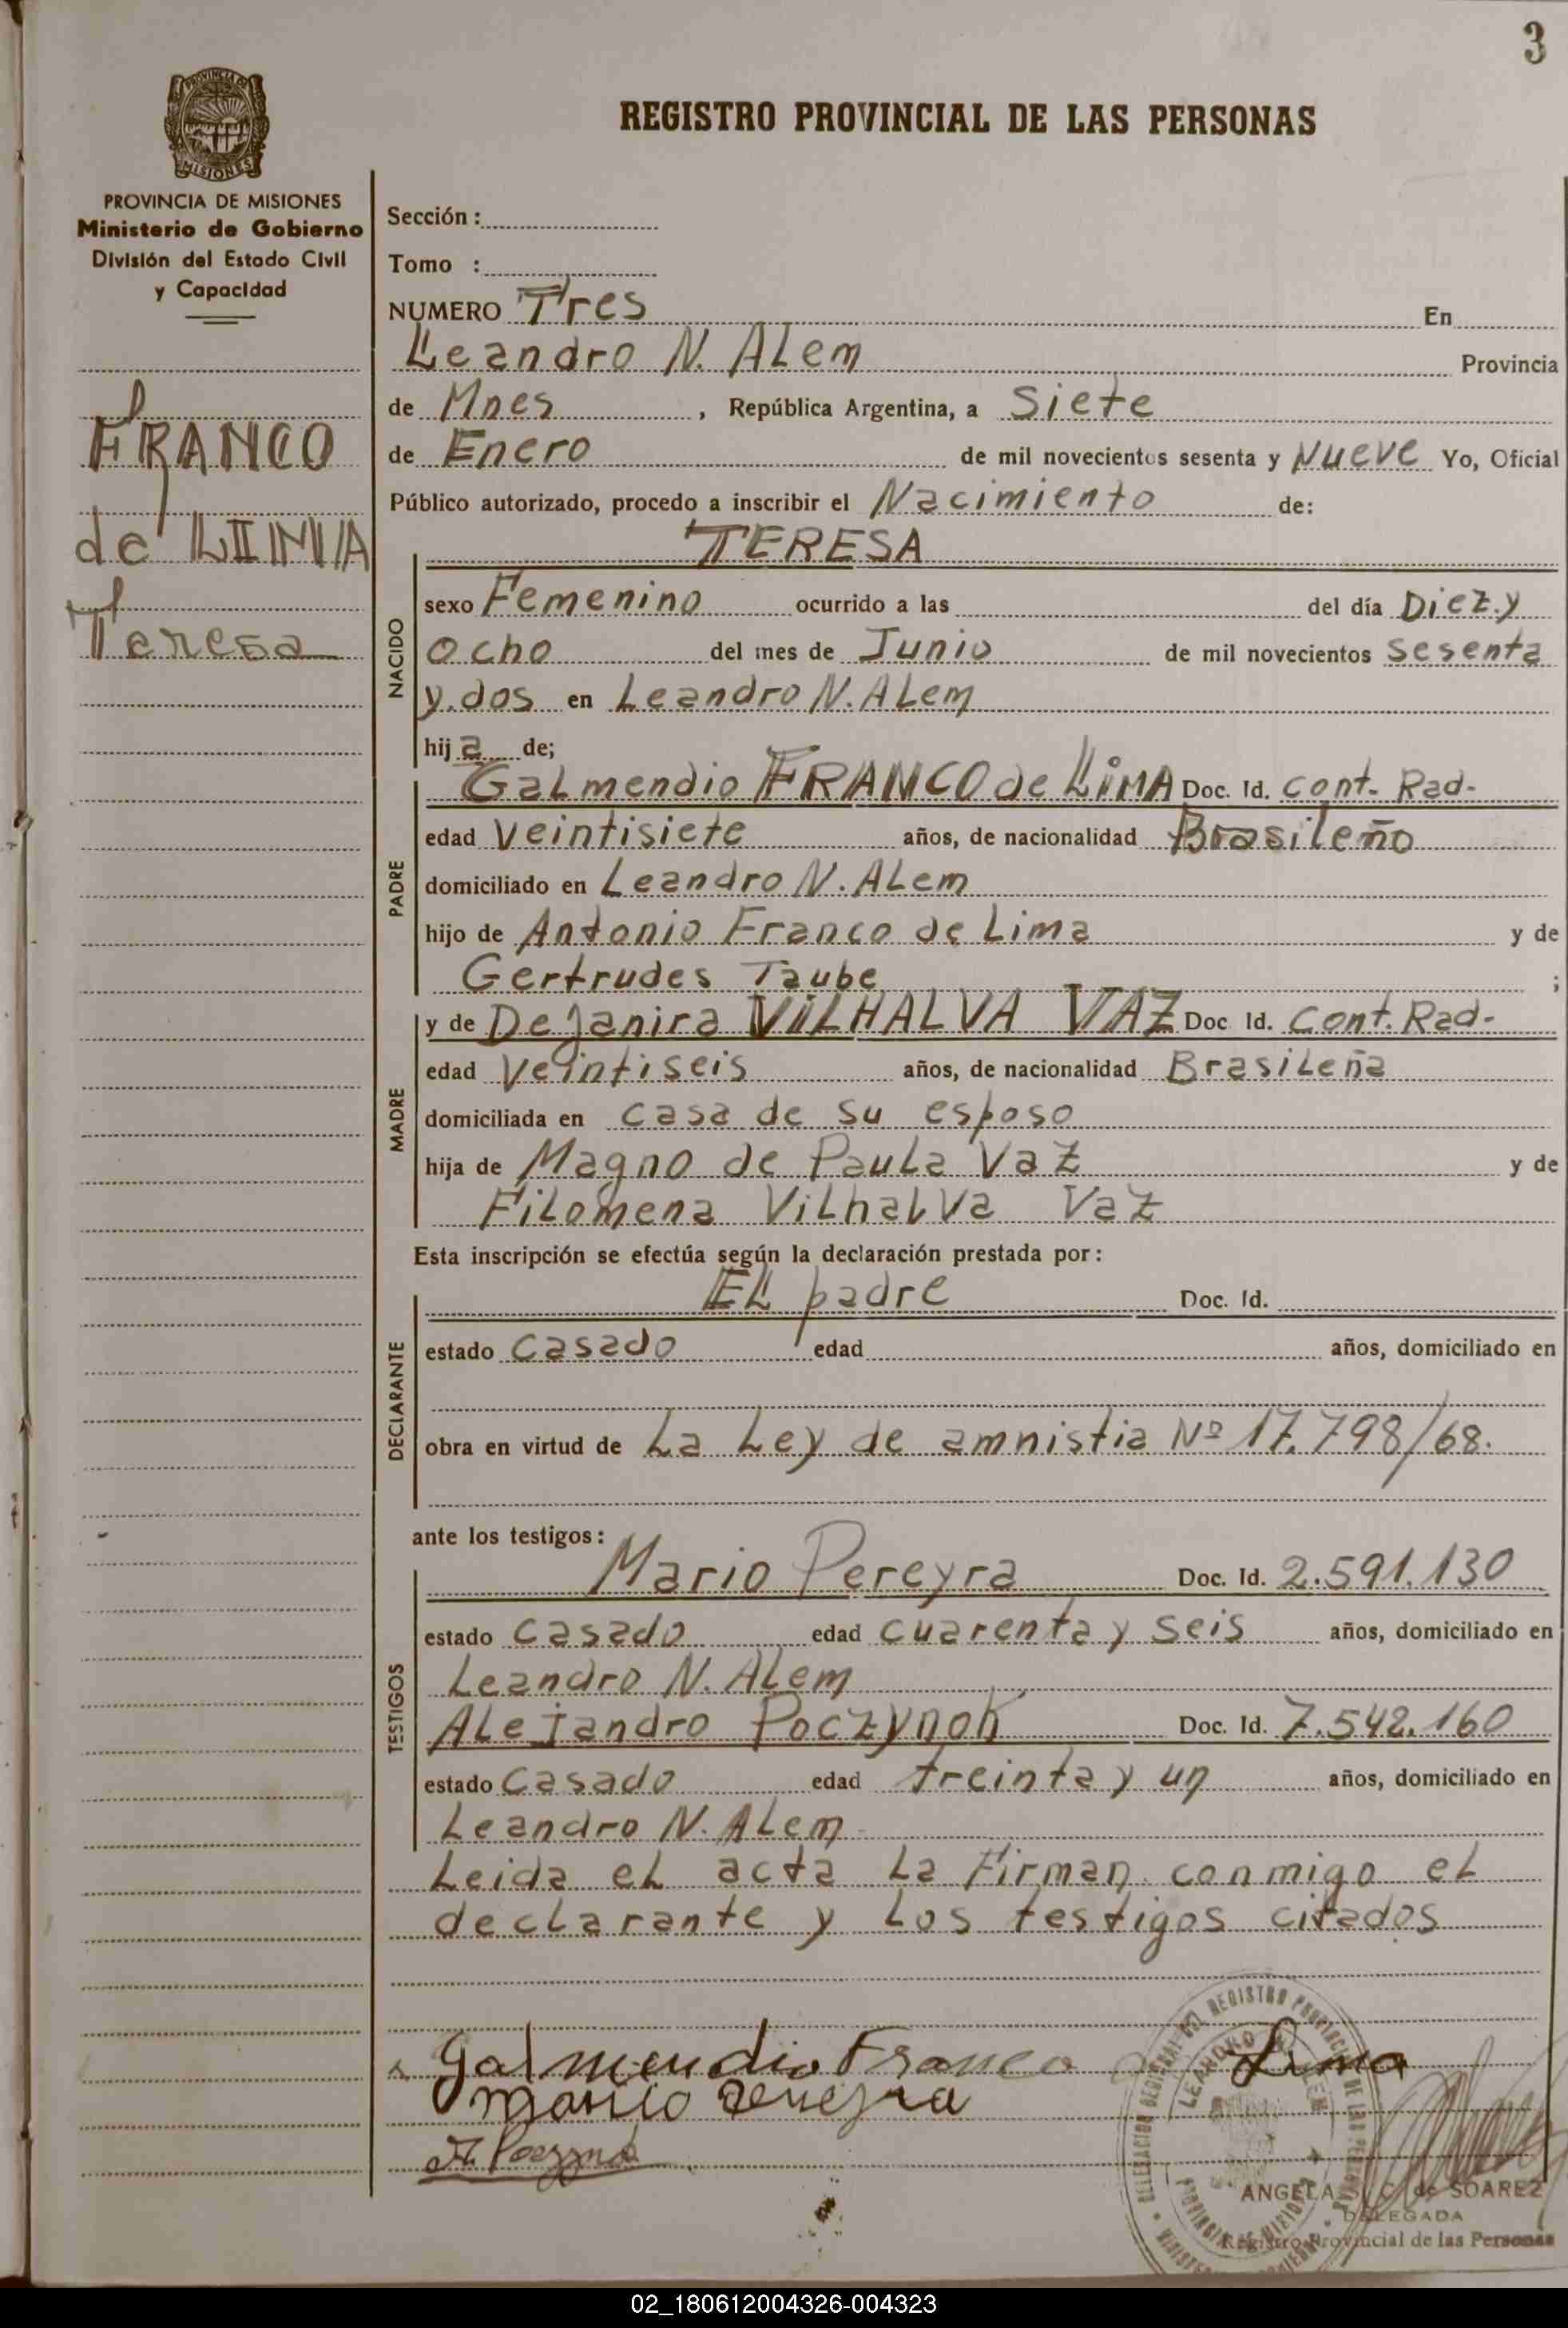 3
REGISTRO PROVINCIAL DE LAS PERSONAS
PROVINCIA DE MISIONES
Ministerio de Gobierno
División del Estado Civil
y Capacidad
FRANCO
de LIMA
Teresa
Sección :
Tomo :
NUMERO Tres En
Leandro N. ALem Provincia
de Mnes , República Argentina, a Siete
de Enero de mil novecientos sesenta y Nueve Yo, Oficial
Público autorizado, procedo a inscribir el Nacimiento de:
TERESA
NACIDO
sexo Femenino ocurrido a las del día Diez y
ocho del mes de Junio de mil novecientos sesenta
y dos en Leandro N. ALem
hij a de;
PADRE
GaLmendio FRANCO de LiMA Doc. Id. cont. Rad-
edad veintisiete años, de nacionalidad Brasileño
domiciliado en Leandro N. ALem
hijo de Antonio Franco de Lima y de
Gertrudes Taube ;
MADRE
y de Dejanira ViLHALVA VAZ Doc Id. Cont. Rad-
edad Veintiseis años, de nacionalidad BrasiLeña
domiciliada en casa de su esposo
hija de Magno de PauLa Vaz y de
FiLomena ViLhaLva Vaz
Esta inscripción se efectúa según la declaración prestada por:
DECLARANTE
EL padre Doc. Id.
estado casado edad años, domiciliado en
obra en virtud de La Ley de amnistia Nº 17.798/68.
ante los testigos:
TESTIGOS
Mario Pereyra Doc. Id. 2.591.130
estado casado edad cuarenta y seis años, domiciliado en
Leandro N. ALem
ALejandro Poczynok Doc. Id. 7.542.160
estado casado edad treinta y un años, domiciliado en
Leandro N. ALem
Leida eL acta La Firman conmigo eL
decLarante y Los testigos citados
Galmendio Franco Lima
Mario Pereyra
ANGELA S. C. de SOAREZ
DELEGADA
Registro Provincial de las Personas
02_180612004326-004323